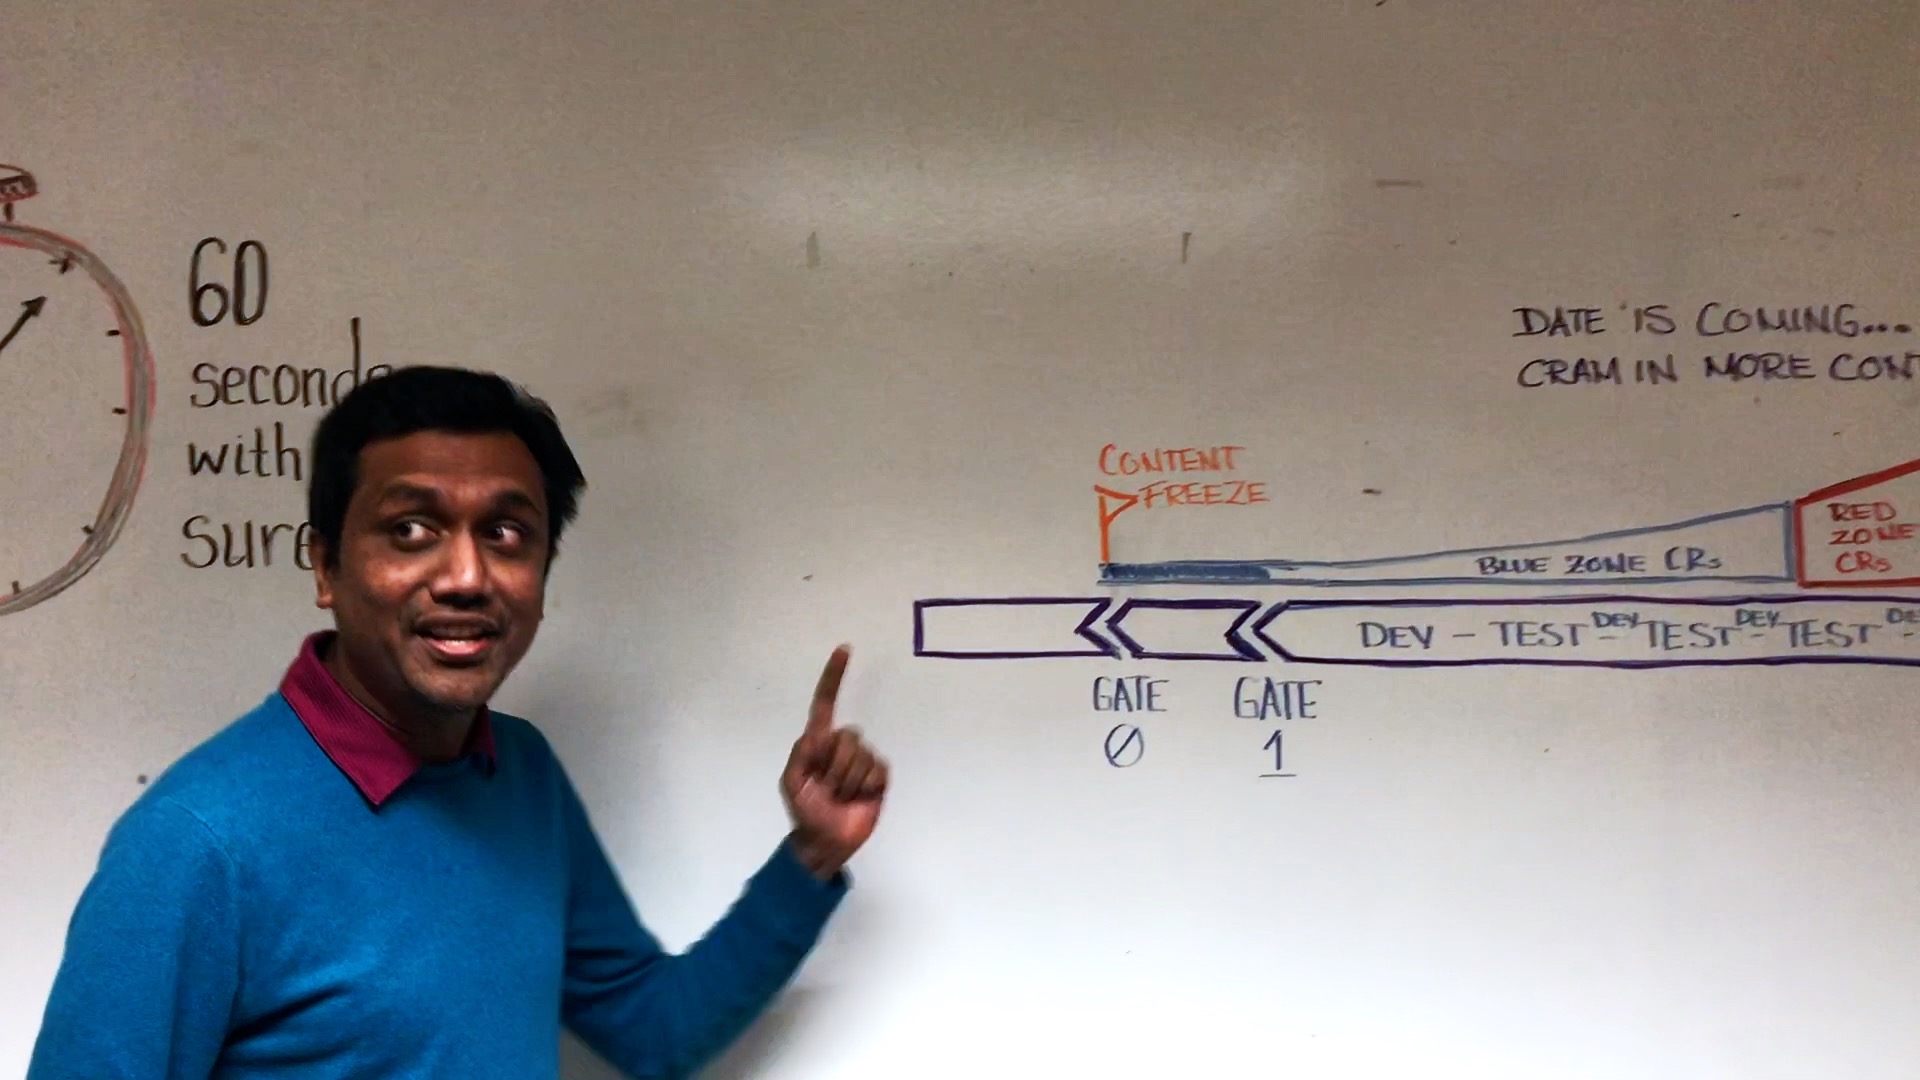 60
seconds
with
Sure
DATE IS COMING...
CRAM IN MORE CONT
CONTENT
FREEZE
RED
ZONE
CRs
BLUE ZONE CRs
DEV - TEST DEV - TEST DEV - TEST DE
GATE
0
GATE
1